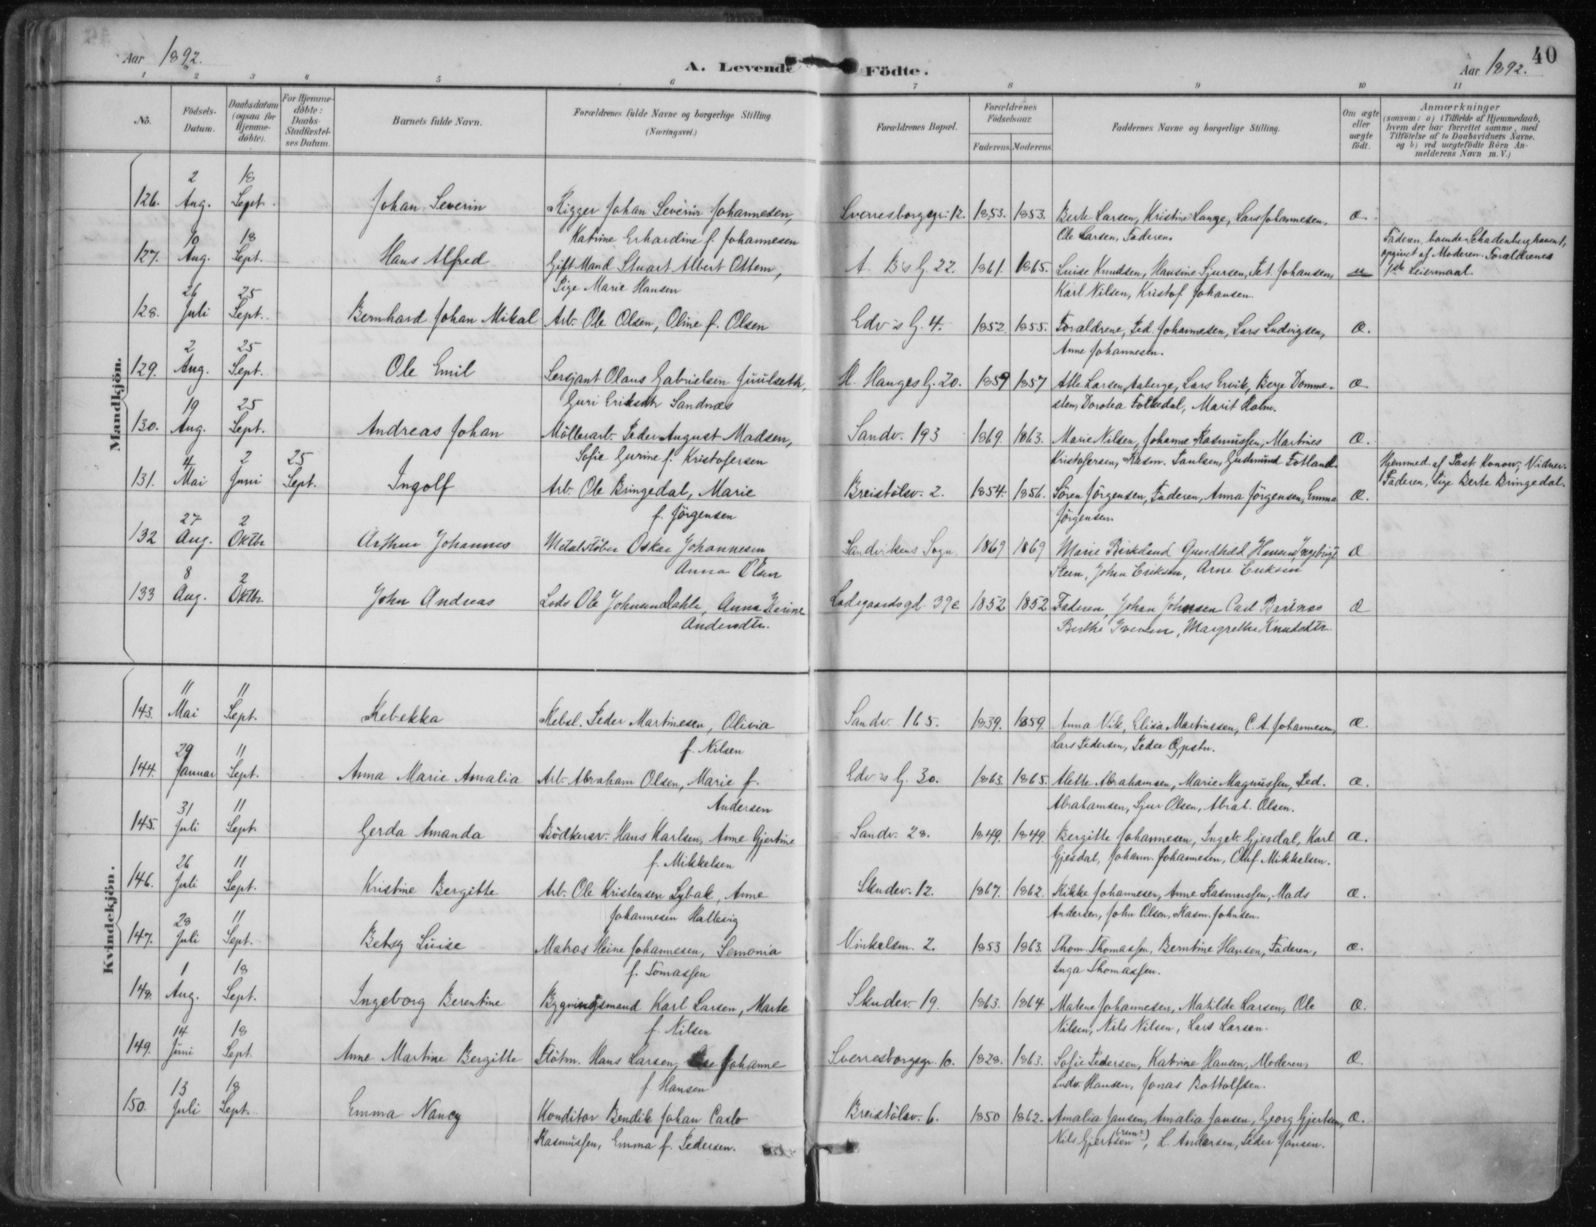 40
Aar 1892.
A. Levende Födte.
Aar 1892.
1 2 3 4 5 6 7 8 9 10 11
No. Födsels-Datum. Daabsdatum (ogsaa for Hjemmedöbte). For Hjemmedöbte: Daabs-Stadfæstelses Datum. Barnets fulde Navn. Forældrenes fulde Navne og borgerlige Stilling (Næringsvei.) Forældrenes Bopæl. Forældrenes Födselsaar. Faderens Moderens Faddernes Navne og borgerlige Stilling. Om ægte eller uægte födt. Anmærkninger (saasom: a) i Tilfælde af Hjemmedaab, hvem der har forrettet samme, med Tilföielse af to Daabsvidners Navne, og b) ved uægtefödte Börn Anmelderens Navn m. V.)
Mandkjön.
126. 2 Aug. 18 Sept. Johan Severin Rigger Johan Severin Johannesen, Sverresborgsgr. 12. 1853. 1853. Berte Larsen, Kristine Lange, Lars Johannesen, æ.
Katrine Erhardine f. Johannesen Ole Larsen, Faderen.
127. 10 Aug. 18 Sept. Hans Alfred Gift Mand Stuart Albert Ottem, A. B's G. 22. 1861. 1865. Luise Knudsen, Hansine Sjursen, Pet. Johansen, uæ Faderen, boende
Pige Marie Hansen Karl Nilsen, Kristof Johansen. opgivet af Moderen. Forældrenes
1ste Leiermaal.
128. 26 Juli 25 Sept. Bernhard Johan Mikal Arb. Ole Olsen, Oline f. Olsen Edv's G. 4. 1852 1855. Forældrene, Ped. Johannesen, Lars Ludvigsen, æ.
Anne Johannesen.
129. 2 Aug. 25 Sept. Ole Emil Sersjant Olaus Gabrielsen Juulseth, H. Hauges G. 20. 1859 1857 Atle Larsen Aaberge, Lars Ervik, Berge æ
Guri Eriksdtr Sandnæs Dorotea Folkedal, Marit Holm.
130. 19 Aug. 25 Sept. Andreas Johan Möllerarb. Peder August Madsen, Sandv. 193 1869. 1863. Marie Nilsen, Johanne Rasmussen, Martines æ.
Sofie Gurine f. Kristofersen Kristofersen, Rasm. Paulsen, Gudmund Fotland.
131. 4 Mai 2 Juni 25 Sept. Ingolf Arb. Ole Bringedal, Marie Breistölsv. 2. 1854. 1856. Sören Jörgensen, Faderen, Anna Jörgensen, Emma æ. Hjemmed. af Past. Konow, Vidner:
f. Jörgensen Jörgensen. Faderen, Pige Berte Bringedal.
132 27 Aug. 2 Oktbr Arthur Johannes Metalstöber Oskar Johannesen Sandvikens Sogn 1869 1869 Marie Birkelund Gundhild Hansen, Ingebrigt æ
Anna Olsen Steen, John Eriksen, Arne Eriksen
133 8 Aug. 2 Oktbr. John Andreas Lods Ole Johnsen Dahle, Anna Karine Ladegaardsgd. 39c 1852 1852 Faderen, Johan Johnsen Carl æ
Andersdtr. Berthe Iversen, Margrethe Knudsdtr.
Kvindekjön.
143. 11 Mai 11 Sept. Rebekka Rebsl. Peder Martinesen, Olivia Sandv. 165. 1839. 1859. Anna Vik, Elisa Martinssen, C. A. Johannesen, æ.
f. Nilsen Lars Pedersen, Peder
144. 29 Januar 11 Sept. Anna Marie Amalia Arb. Abraham Olsen, Marie f. Edv's G. 30. 1863. 1865. Alette Abrahamsen, Marie Magnussen, Ped. æ.
Andersen Abrahamsen, Sjur Olsen, Abrah. Olsen.
145. 31 Juli 11 Sept. Gerda Amanda Bödkersv. Hans Karlsen, Anne Gjertine Sandv. 28. 1849. 1849. Bergitte Johannesen, Ingeb. Gjesdal, Karl æ.
f. Mikkelsen Gjesdal, Johann. Johannesen, Oluf Mikkelsen.
146. 26 Juli 11 Sept. Kristine Bergitte Arb. Ole Kristensen Lybak, Anne Skudev. 12. 1867. 1862. Rikke Johannesen, Anne Rasmussen, Mads æ.
Johannesen Hallevig Andersen, John Olsen, Rasm. Johnsen.
147. 28 Juli 11 Sept. Betsy Luise Matros Heine Johannesen, Semonia Vinkelsm. 2. 1853 1863. Thom. Thomassen, Berntine Hansen, Faderen, æ.
f. Tomassen Inga Thomassen.
148. 1 Aug. 18 Sept. Ingeborg Berentine Bygningsmand Karl Larsen, Marte Skudev. 19. 1863. 1864. Malene Johannesen, Matilde Larsen, Ole æ.
f. Nilsen Nilsen, Nils Nilsen, Lars Larsen.
149. 14 Juni 18 Sept. Anne Martine Bergitte Flötm. Hans Larsen, Johanne Sverresborgsgr. 10. 1828. 1863. Sofie Pedersen, Katrine Hansen, Moderen, æ.
f. Hansen Ludv. Hansen, Jonas Bottolfsen.
150. 13 Juli 18 Sept. Emma Nancy Konditor Bendik Johan Carlo Breistölsv. 6. 1850 1862. Amalia Jansen, Amalia Jansen, Georg Gjertsen, æ.
Rasmussen, Emma f. Pedersen. Nils Gjertsen, L. Andersen, Peder Jansen.